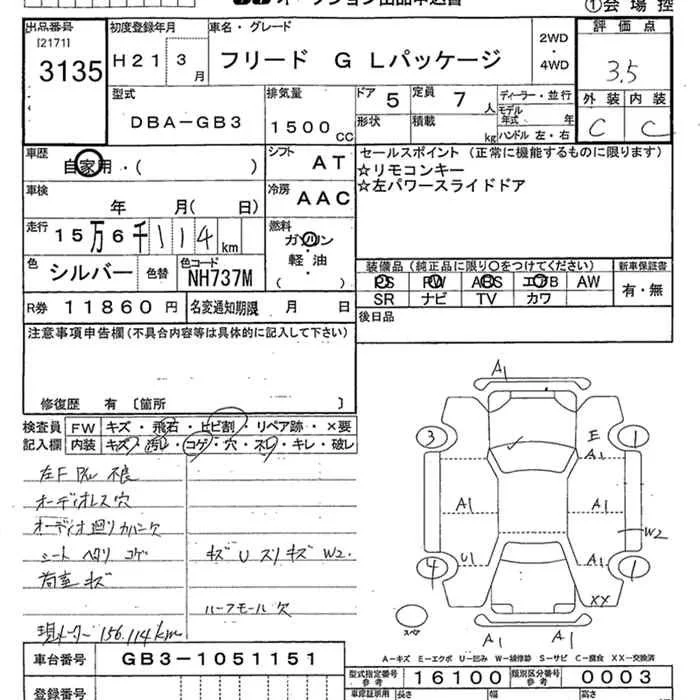 ①会場控
出品番号
[2171]
3135
初度登録年月
H21 3月
車名・グレード
フリード G Lパッケージ
2WD
・
4WD
評価点
3.5
型式
DBA-GB3
排気量
1500cc
ドア 5
定員 7人
形状
積載 kg
ディーラー・並行
モデル年式 年
ハンドル 左・右
外装 内装
C C
車歴
自家用・( )
シフト AT
セールスポイント (正常に機能するものに限ります)
☆リモコンキー
☆左パワースライドドア
車検
年 月( 日)
冷房 AAC
走行
15万6千114km
燃料
ガソリン
・
軽油
色 シルバー 色替 色コード NH737M
装備品 (純正品に限り〇をつけてください) 新車保証書
PS PW ABS エアB AW 有・無
SR ナビ TV カワ
R券 11860円 名変通知期限 月 日
後日品
注意事項申告欄 (不具合内容等は具体的に記入して下さい)
修復歴 有 〔箇所 〕
検査員 FW キズ・飛石・ヒビ割・リペア跡・×要
記入欄 内装 キズ・汚レ・コゲ・穴・スレ・キレ・破レ
左F PW 不良
オーディオレス穴
オーディオ廻りカバー欠
シート ヘタリ コゲ
キズ U スリキズ W2.
荷室 キズ
ハーフモール 欠
現メーター 156,114km
A1
3 E 1
A1
A1 A1
W2
4 U1 A1 1
XX
スペア
A1 A1
A-キズ E-エクボ U-凹み W-補修跡 S-サビ C-腐食 XX-交換済
車台番号 GB3-1051151
型式指定番号 参考 16100 類別区分番号 参考 0003
登録番号
車庫証明用 参考 長さ 幅 高さ